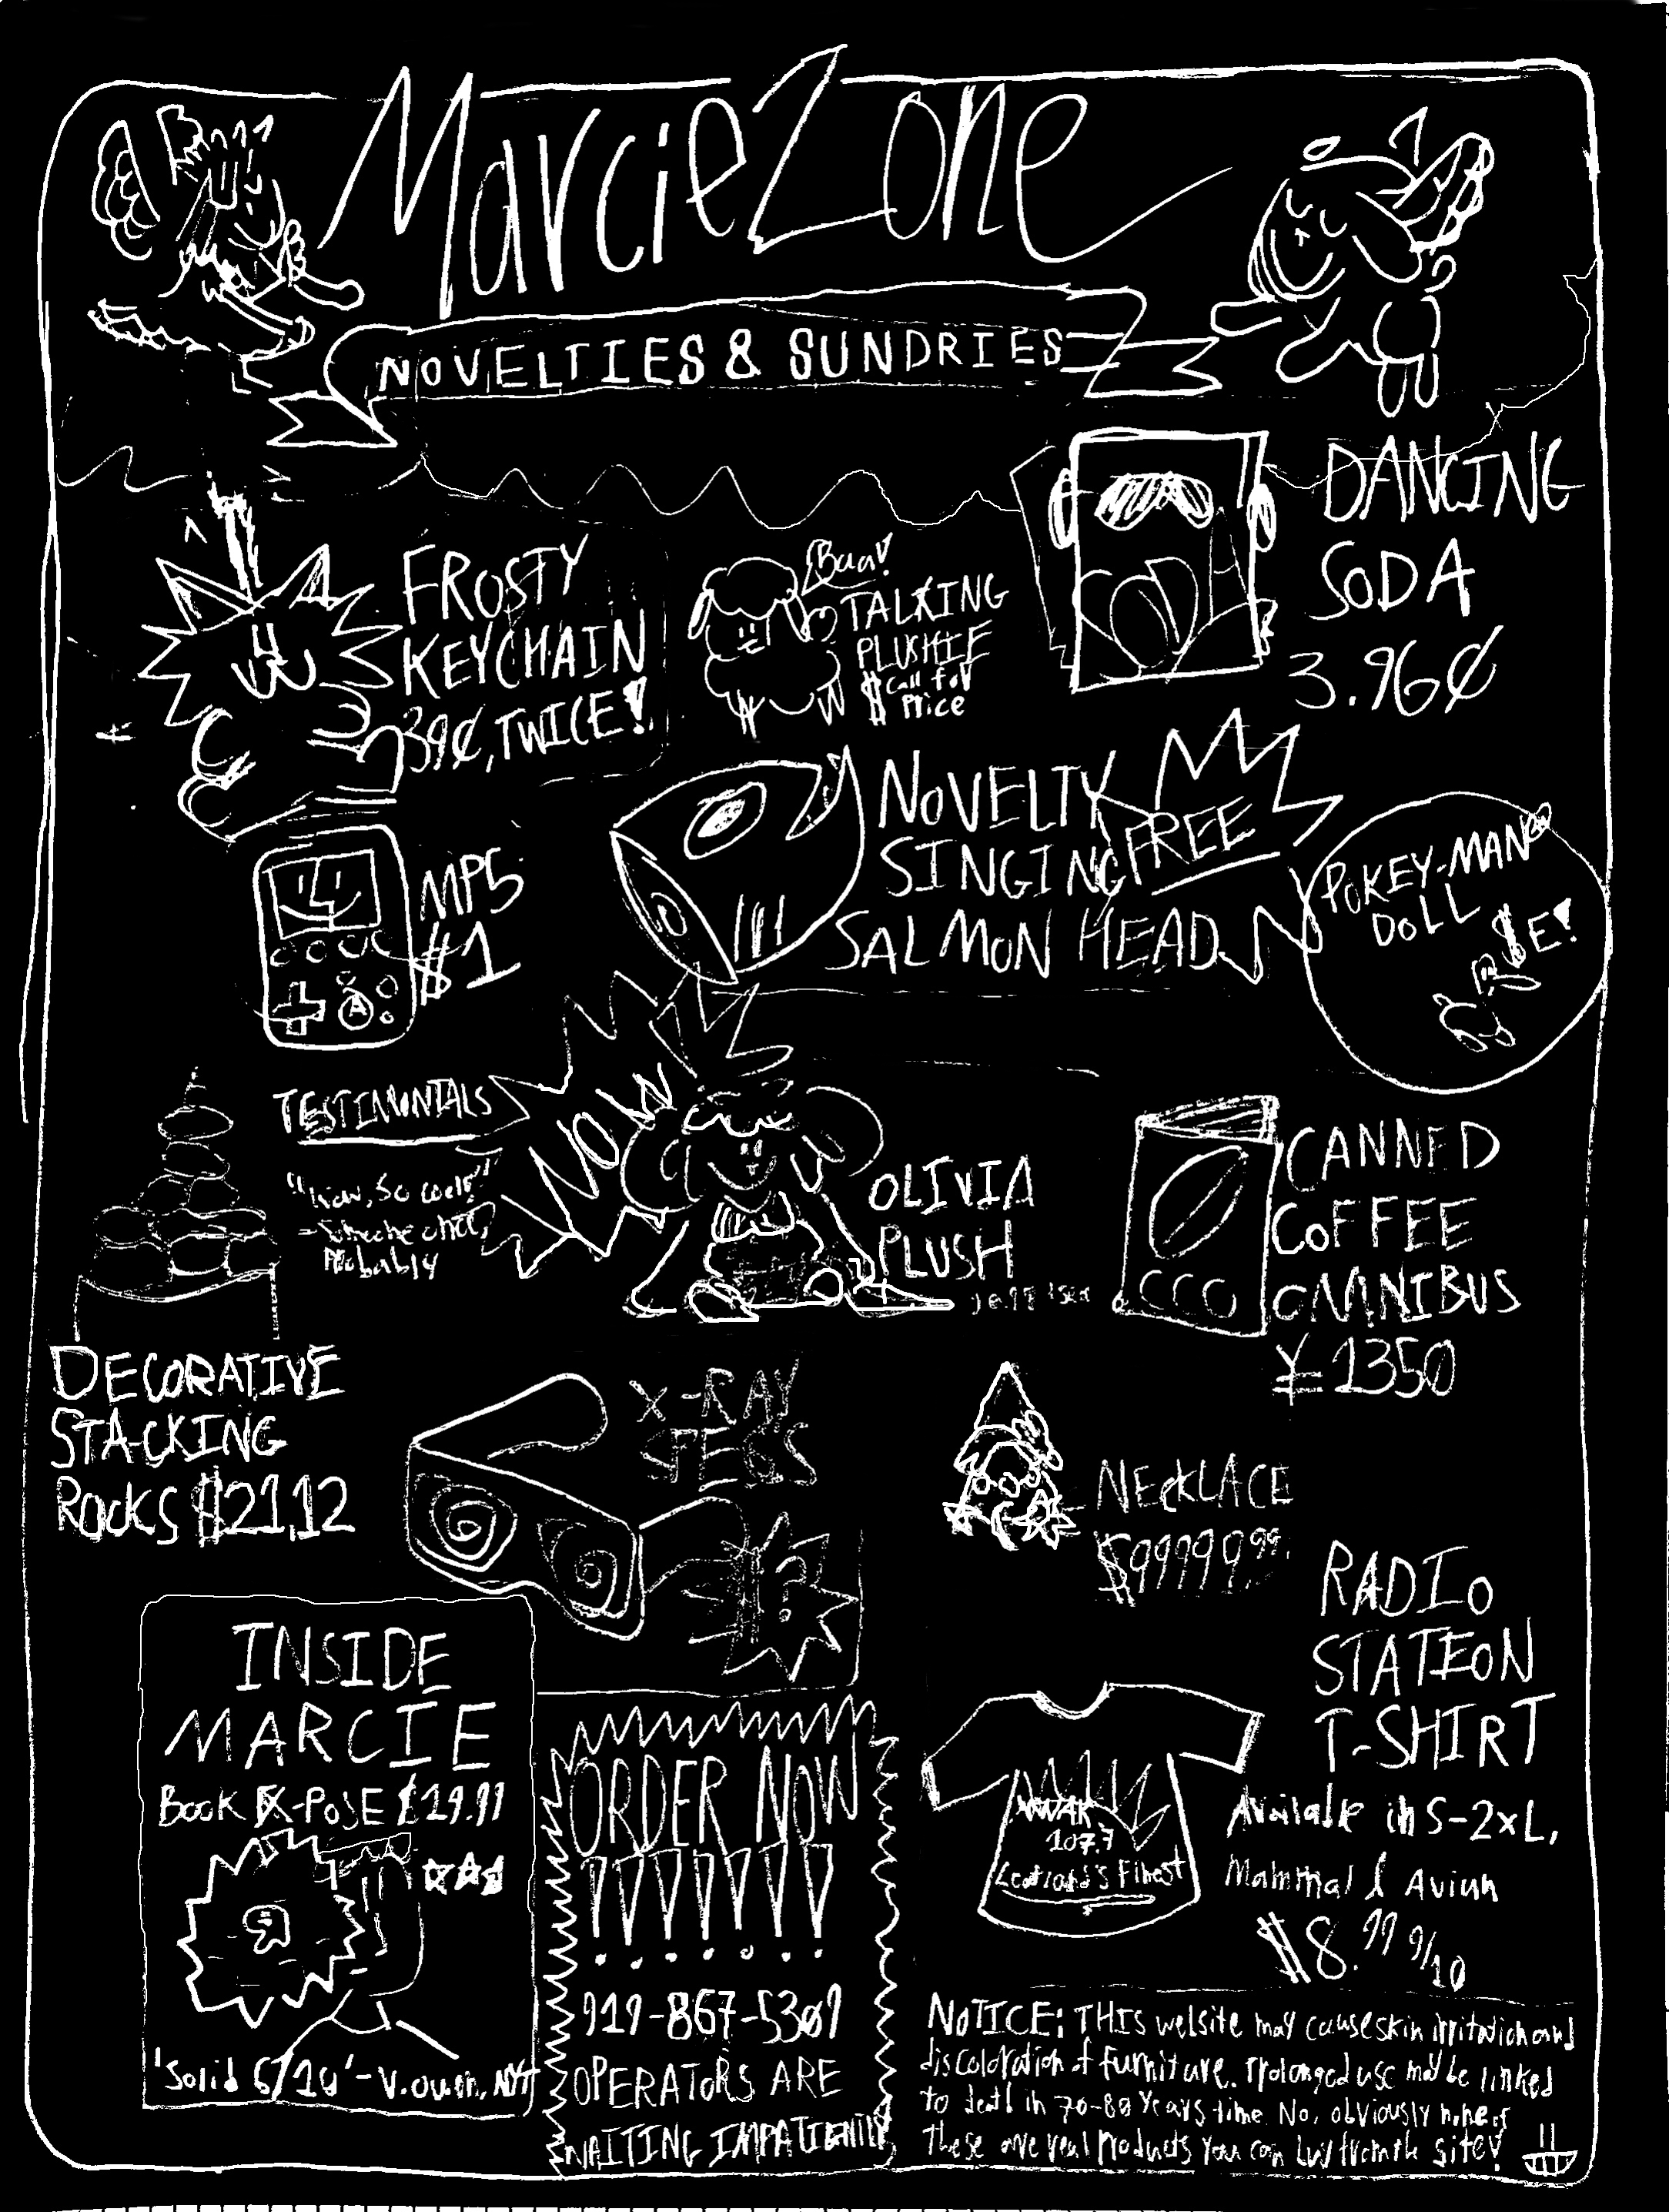 MarcieZone
NOVELTIES & SUNDRIES
FROSTY
KEYCHAIN
39¢, TWICE!
Baa!
TALKING
PLUSHIE
$ Call for
Price
DANCING
SODA
3.96¢
MP5
$1
NOVELTY
SINGING
SALMON HEAD
FREE
POKEY-MAN
DOLL
$E!
TESTIMONIALS
"Wow, so cool!"
Probably
WOW
OLIVIA
PLUSH
CANNED
COFFEE
OMNIBUS
¥1350
DECORATIVE
STACKING
ROCKS $21.12
X-RAY
SPECS
NECKLACE
$99999.99
INSIDE
MARCIE
BOOK EX-POSE £19.99
'Solid 6/10' - V. Owen, NYT
ORDER NOW
!!!!!!!
919-867-5309
OPERATORS ARE
WAITING IMPATIENTLY
RADIO
STATION
T-SHIRT
107.7
Finest
Available in S-2XL,
Mammal & Avian
$8.99 9/10
NOTICE: THIS website may cause skin irritation and
discoloration of furniture. Prolonged use may be linked
to death in 70-80 years time. No, obviously none of
these are real products you can buy from the site!